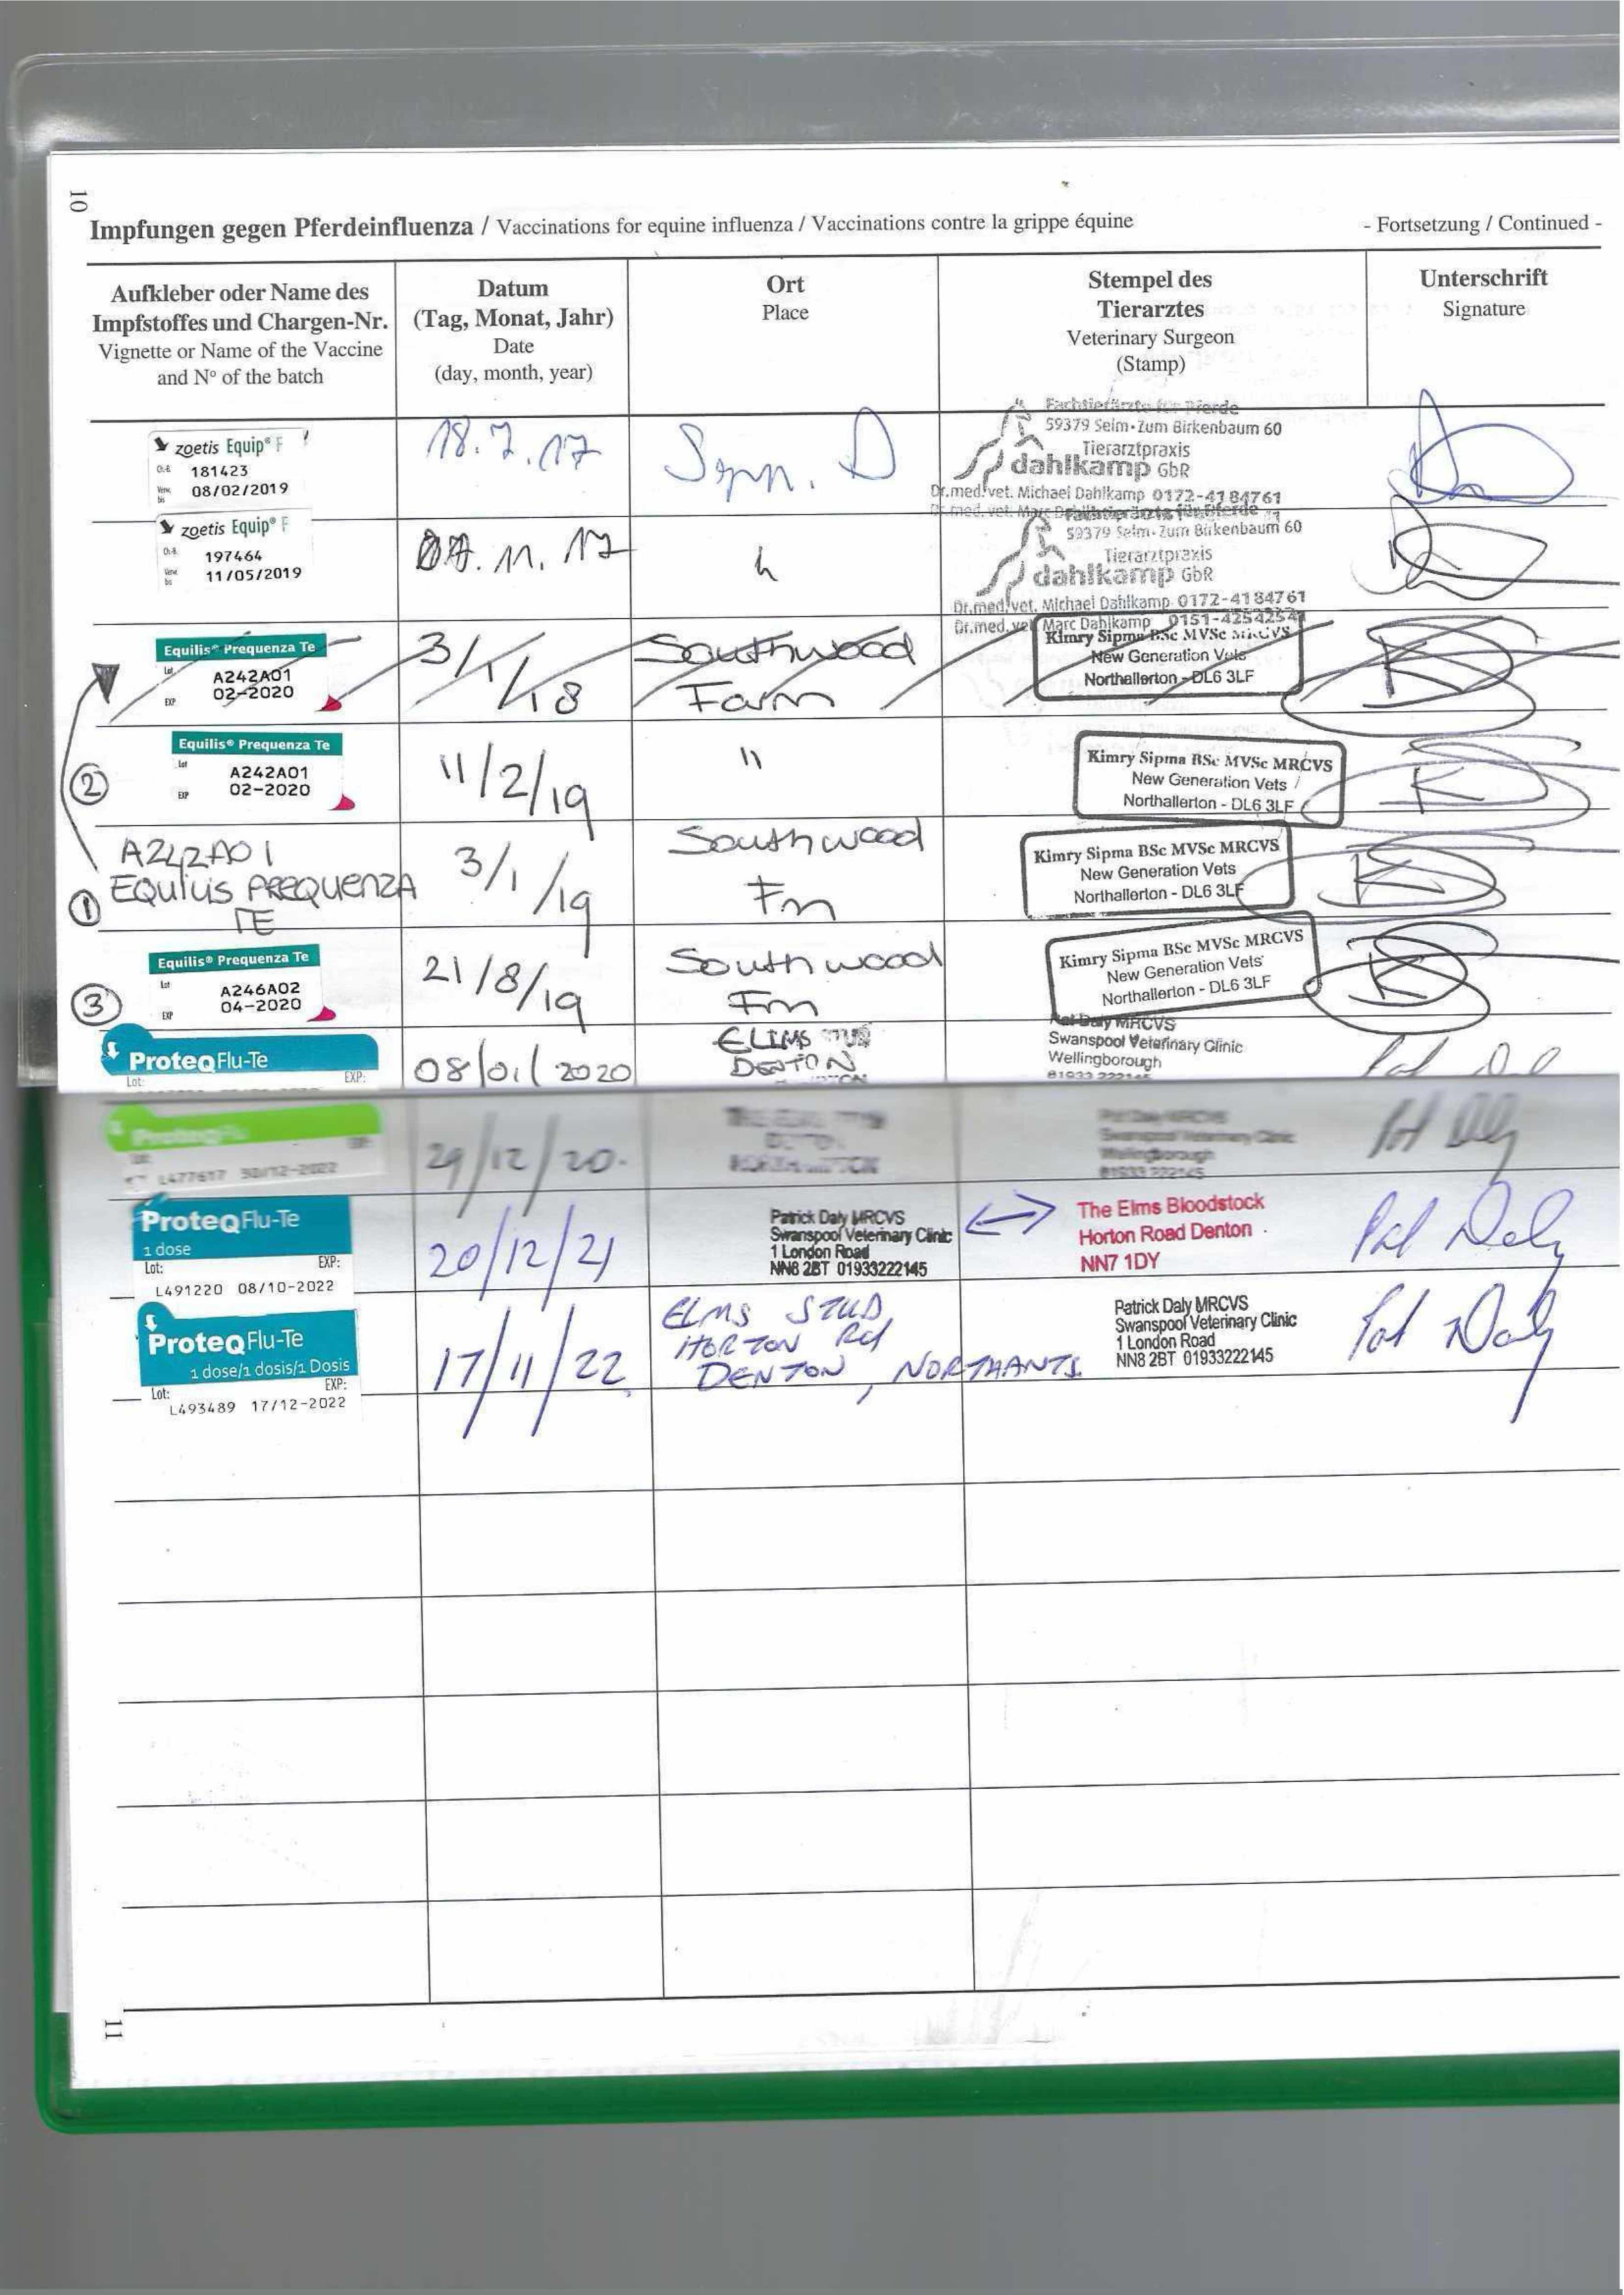 10
Impfungen gegen Pferdeinfluenza / Vaccinations for equine influenza / Vaccinations contre la grippe équine
- Fortsetzung / Continued -
Aufkleber oder Name des
Impfstoffes und Chargen-Nr.
Vignette or Name of the Vaccine
and Nº of the batch
Datum
(Tag, Monat, Jahr)
Date
(day, month, year)
Ort
Place
Stempel des
Tierarztes
Veterinary Surgeon
(Stamp)
Unterschrift
Signature
zoetis Equip® F
181423
08/02/2019
18.7.17
Fachtierärzte für Pferde
59379 Selm-Zum Birkenbaum 60
Tierarztpraxis
dahlkamp GbR
Dr.med.vet. Michael Dahlkamp 0172-4184761
zoetis Equip® F
197464
11/05/2019
11.17
Fachtierärzte für Pferde
59379 Selm-Zum Birkenbaum 60
Tierarztpraxis
dahlkamp GbR
Dr.med.vet. Michael Dahlkamp 0172-4184761
Dr.med.vet Marc Dahlkamp 0151-42542541
Equilis® Prequenza Te
Lot
A242A01
EXP 02-2020
3/1/18
Southwood
Farm
Kimry Sipma BSc MVSc MRCVS
New Generation Vets
Northallerton - DL6 3LF
2
Equilis® Prequenza Te
Lot
A242A01
EXP 02-2020
11/2/19
"
Kimry Sipma BSc MVSc MRCVS
New Generation Vets
Northallerton - DL6 3LF
1
A242A01
EQUILIS PREQUENZA
TE
3/1/19
Southwood
Fm
Kimry Sipma BSc MVSc MRCVS
New Generation Vets
Northallerton - DL6 3LF
3
Equilis® Prequenza Te
Lot
A246A02
EXP 04-2020
21/8/19
Southwood
Fm
Kimry Sipma BSc MVSc MRCVS
New Generation Vets
Northallerton - DL6 3LF
ProteqFlu-Te
Lot: EXP:
08/01/2020
ELMS STUD
DENTON
Pat Daly MRCVS
Swanspool Veterinary Clinic
Wellingborough
01933 222145
ProteqFlu
L477617 30/12-2022
29/12/20.
DENTON
NORTHAMPTON
Pat Daly MRCVS
Swanspool Veterinary Clinic
Wellingborough
01933 222145
Pat Daly
ProteqFlu-Te
1 dose
Lot: EXP:
L491220 08/10-2022
20/12/21
Patrick Daly MRCVS
Swanspool Veterinary Clinic
1 London Road
NN8 2BT 01933222145
The Elms Bloodstock
Horton Road Denton
NN7 1DY
Pat Daly
ProteqFlu-Te
1 dose/1 dosis/1 Dosis
Lot: EXP:
L493489 17/12-2022
17/11/22
ELMS STUD
HORTON Rd
DENTON, NORTHANTS.
Patrick Daly MRCVS
Swanspool Veterinary Clinic
1 London Road
NN8 2BT 01933222145
Pat Daly
11